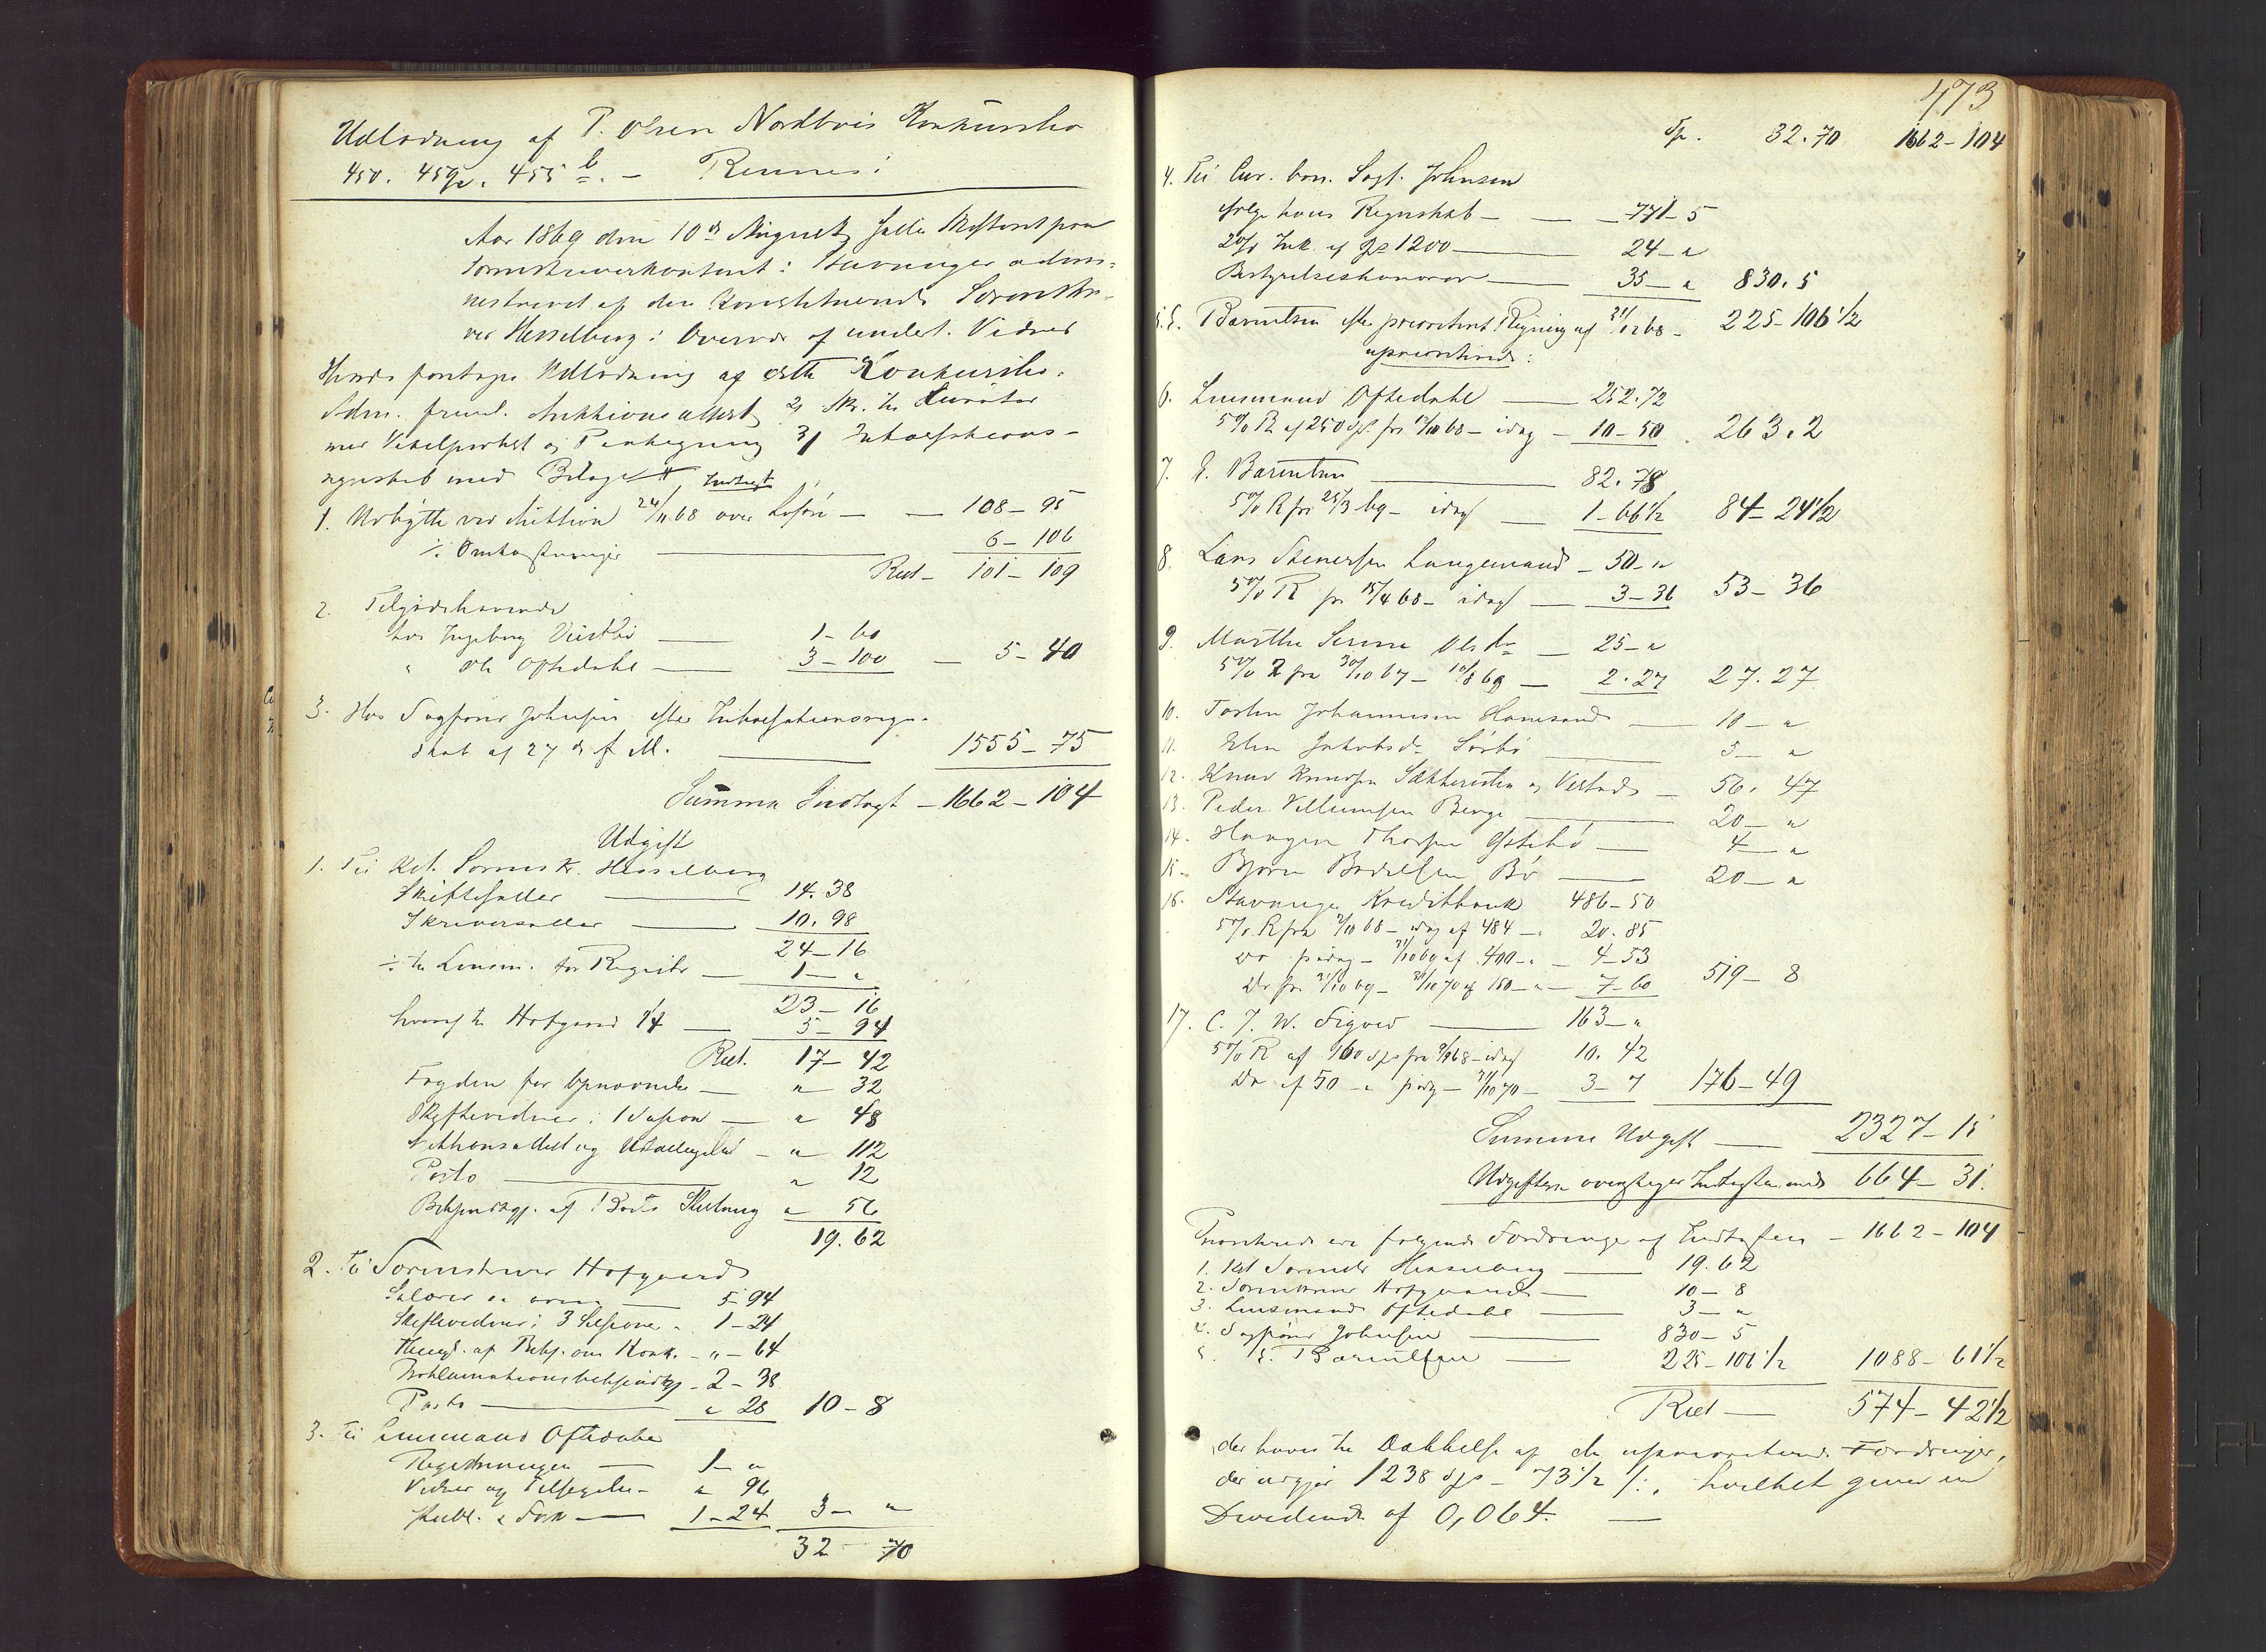 Udlodning af P. Olsen Nordbøes Konkursbo
450. 459a. 455 b. — Rennesø
Aar 1869 den 10de August holdt Skifteret paa
Sorenskriverkontoret i Stavanger admi-
nistreret af den konstituerede Sorenskri-
ver Hesselberg i Overvær af undert. Vidner
Hvorda foretoges Udlodning af dette Konkursbo.
Adm. freml. Auktionsattest 2) Skr. fra Kurator
med Vexelprotest og Paategning 3) Inkassations-
regnskab med Bilage
Indtægt
1. Udbytte ved Auktion 24/11 68 over Løsøre — — 108 — 95
÷ Omkostninger — 6 — 106
Rest — 101 — 109
2. Tilgodehavende
hos Ingeborg — 1 — 60
" Ole Oftedahl — 3 — 100 — 5 — 40
3. Hos Sagfører Johnsen efter Inkassationsregn-
skab af 27 ds f. M. — 1555 — 75
Summa Indtægt — 1662 — 104
Udgift
1. Til Kst. Sorenskr. Hesselberg
Skiftesaller — 14. 38
Skriversaller — 10. 98
24 — 16
÷ til Lensm. for Registr — 1 — "
23 — 16
hvoraf til Hofgaard — 5 — 94
Rest. 17 — 42
Fogden for Opnævnelse — " 32
Skiftevidner i 1 Session — " 48
Auktionsattest og — " 112
Porto — " 12
Bekjendtgj. af Boets Slutning " 56
19. 62
2. Til Sorenskriver Hofgaard
Salærer — 5 — 94
Skiftevidner i 3 Sessioner — 1 — 24
af Bekj. om Konk. — " — 64
Proklamationsbekjendtgj — 2 — 38
Porto — " 28 10 — 8
3. Til Lensmand Oftedahl
Registreringen — 1 — "
Vidner og Tilsigelse — " 96
1 — 24 3 — "
32 — 70
473
Sp. 32. 70 1662 — 104
4. Til Cur. bon. Sagf. Johnsen
ifølge hans Regnskab — — 771 — 5
2% Ink. af Sp 1200 — 24 — "
Bestyrelseshonorar — 35 — " 830. 5
5. E. Barentsen efter prioriteret Regning af 31/12 68 — 225 — 106 1/2
uprioriterede:
6. Lensmand Oftedahl — 252. 72
5% R af 250 Sp. fra 12/10 68 — idag — 10 — 50. 263. 2
7. E. Barentsen — 82. 78
5% R fra 25/3 69 — idag — 1 — 66 1/2 84 — 24 1/2
8. Lars Stenersen Langemand — 50 — "
5% R fra 15/4 68 — idag — 3 — 36 53 — 36
9. Marthe Serine Olsdr — 25 — "
5% R fra 30/10 67 — 10/8 69 — 2. 27 27. 27
10. Torsten Johannesen — 10 — "
11. Elen Jakobsdr. Sørbø — 5 — "
12. Knud Knudsen og — 56. 47
13. Peder Villumsen Berge — 20 — "
14. Haagen Thorsen — 4 — "
15. Bjørn Bø — 20 — "
16. Stavanger Kreditbank 486 — 50
5% R fra 1/10 68 — idag af 484 — " 20. 85
Do fra idag — 31/10 69 af 400 — " — 4 — 53
Do fra 31/10 69 — 31/10 70 af 180 — " — 7 — 60 519 — 8
17. C. J. W. Sigved — 163 — "
5% R af 160 Sp fra 68 — idag 10. 42
Do af 50 — " fra idag — 31/10 70 — 3 — 7 176 — 49
Summa Udgift — 2327 — 15
Udgiften overstiger Indtægten med 664 — 31.
Prioriterede ere følgende Fordringer af Indtægten — 1662 — 104
1. Kst Sorenskr Hesselberg — 19. 62
2. Sorenskriver Hofgaard — 10 — 8
3. Lensmand Oftedahl — 3 — "
4. Sagfører Johnsen — 830 — 5
5. E. Barentsen — 225 — 106 1/2 1088 — 61 1/2
Rest — 574 — 42 1/2
der haves til Dækkelse af de uprioriterede Fordringer,
der udgjør 1238 Sp — 73 1/2 ß, hvilket giver en
Dividende af 0,064. —